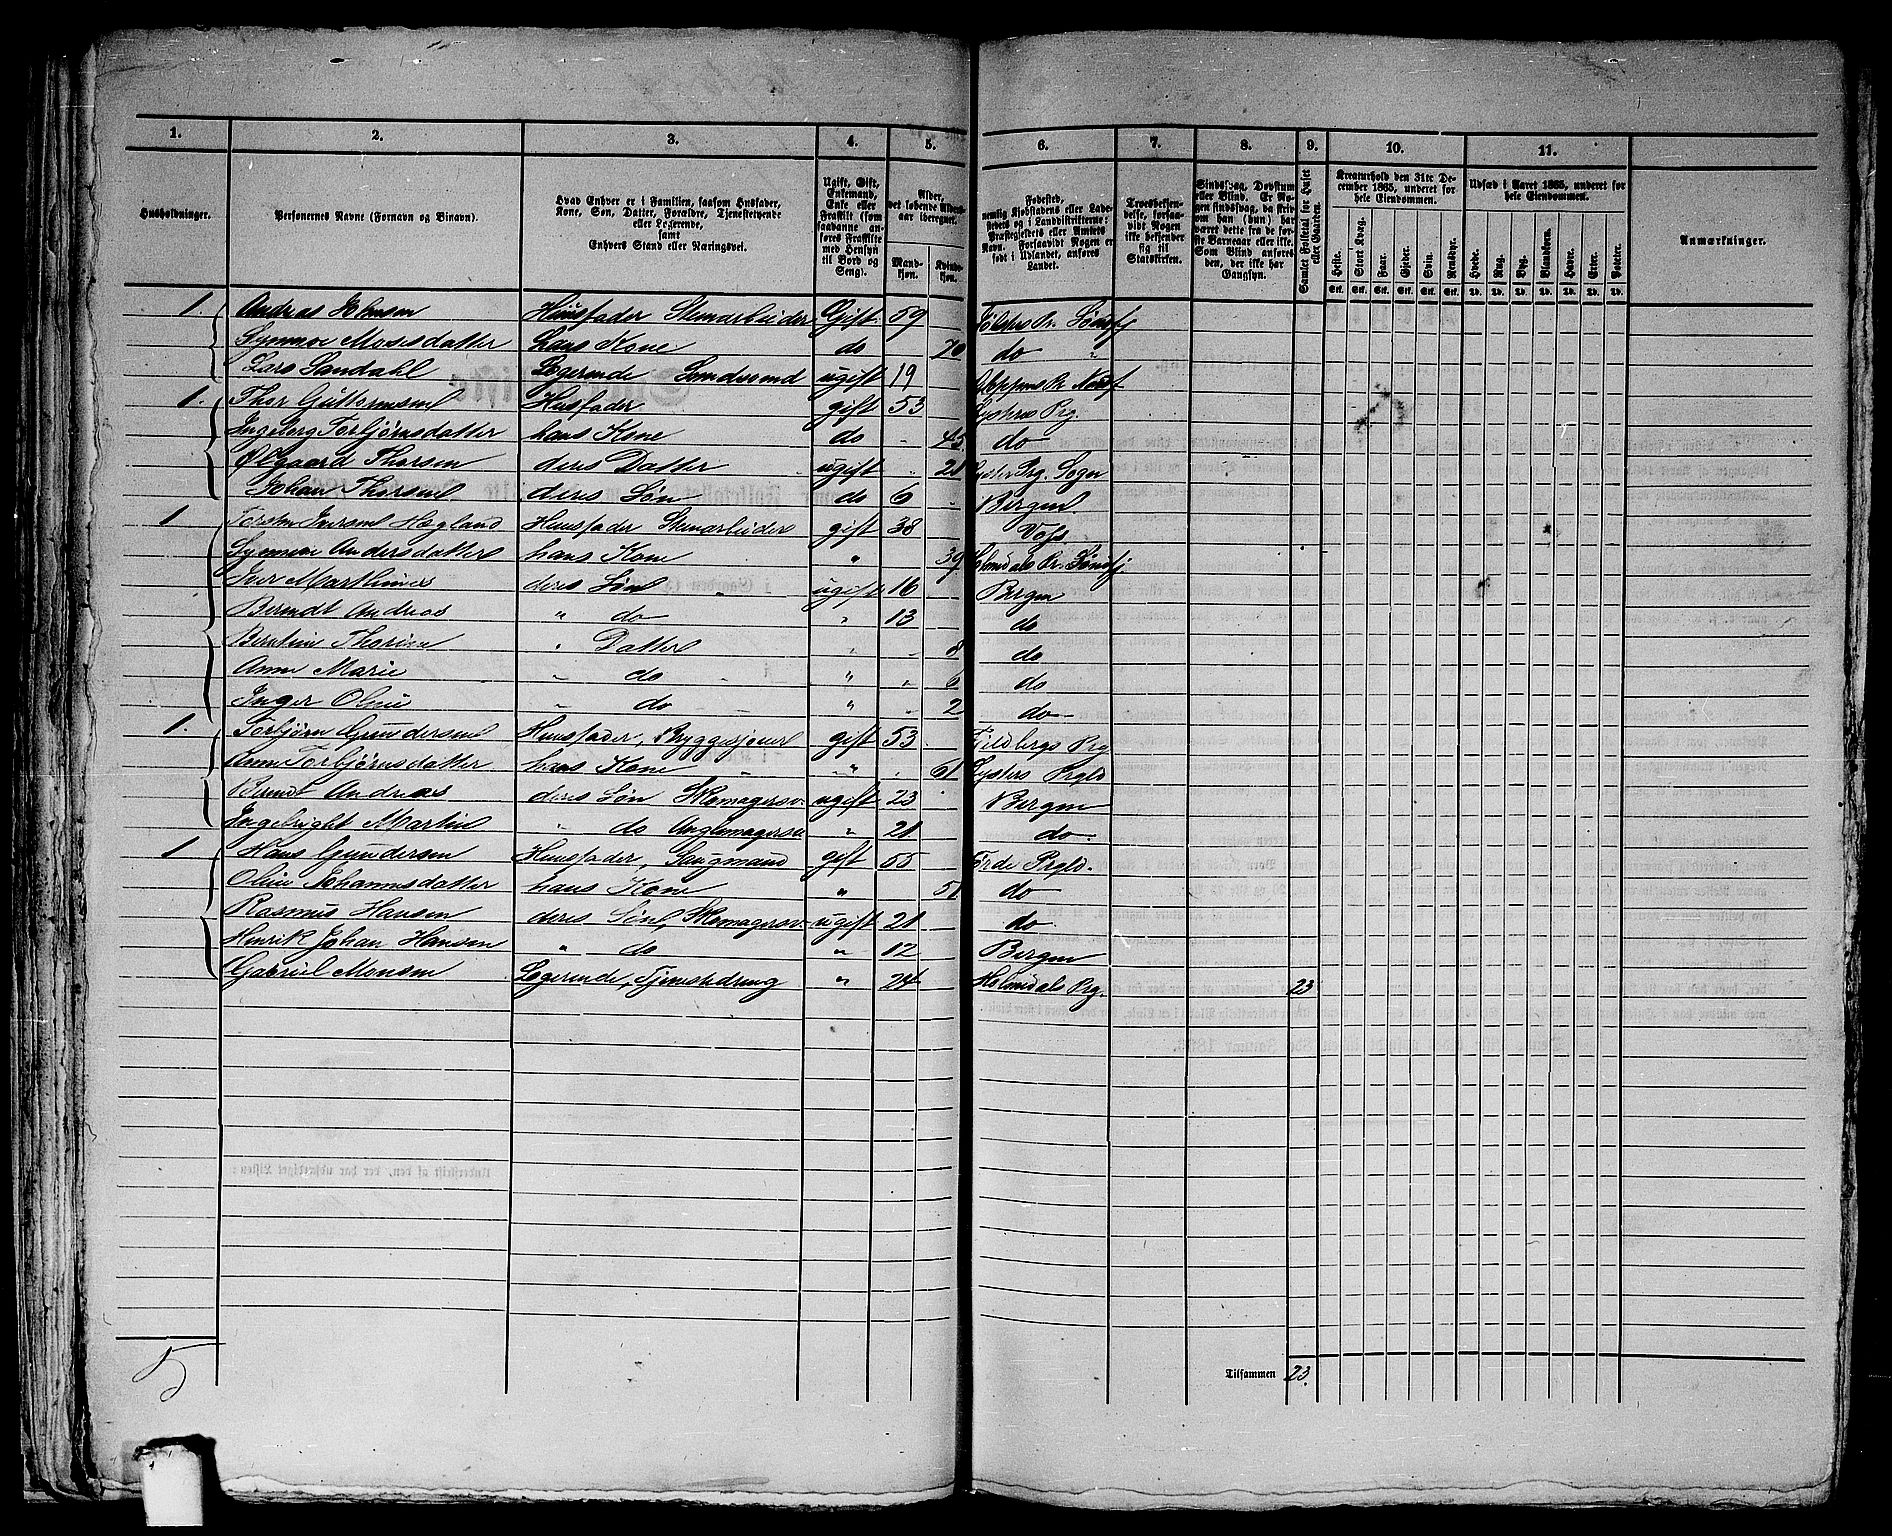 1. 2. 3. 4. 5. 6. 7. 8. 9. 10. 11.
Husholdninger.
Personernes Navne (Fornavn og Binavn).
Hvad Enhver er i Familien, saasom Husfader, Kone, Søn, Datter, Forældre, Tjenestetyende eller Logerende, samt Enhvers Stand eller Næringsvei.
Ugift, Gift, Enkemand, Enke eller Fraskilt (som saadanne anføres Fraskilte med Hensyn til Bord og Seng).
Alder, det løbende Aldersaar iberegnet.
Mandkjøn. Kvindekjøn.
Fødested, nemlig Kjøbstadens eller Ladestedets og i Landdistrikterne Præstegjeldets eller Amtets Navn. Forsaavidt Nogen er født i Udlandet, anføres Landet.
Troesbekjendelse, forsaavidt Nogen ikke bekjender sig til Statskirken.
Sindssvag, Døvstum eller Blind. Er Nogen sindssvag, da skrives om han (hun) har været dette fra de første Barneaar eller ikke. Som Blind anføres den, der ikke har Gangsyn.
Samlet Folketal for Huset eller Gaarden.
Kreaturhold den 31te December 1865, underet for hele Eiendommen.
Heste. Stort Kvæg. Faar. Gjeder. Svin. Rensdyr.
Stk. Stk. Stk. Stk. Stk. Stk.
Udsæd i Aaret 1865, underet for hele Eiendommen.
Hvede. Rug. Byg. Blandkorn. Havre. Erter. Poteter.
Td. Td. Td. Td. Td. Td. Td.
Anmærkninger.
1. Andreas Johnsen Huusfader Stenarbeider Gift 59 Jølsters Pr. Søndfj
Synneve Mosesdatter hans Kone do 70 do "
Lars Sandahl Logerende ugift 19
1. Thor Guttormsen Husfader gift 53 Lysters Prg.
Ingeborg Torbjørnsdatter hans Kone do 45 do
Ølgaard Thorsen deres Datter ugift 21 Lyster Prg. Sogn
Johan Thorsen deres Søn do 6 Bergen
1 Huusfader Stenarbeider gift 38 Voss
Synneve Andersdatter hans Kone " 39 Holmedals Pr. Søndfj
Iver Marthinus deres Søn ugift 16 Bergen
Berndt Andreas " do " 13 do
Bertine Thorine " Datter " 8 do
Anne Marie " do " 6 do
Inger Oline " do " 2 do
1. Torbjørn Gundersen Huusfader, Bryggesjouer gift 53 Fjeldbergs Prg
Anne Torbjørnsdatter hans Kone " 61 Lysters Prgld
Berndt Andreas deres Søn Skomagersv. ugift 23 Bergen
Ingebright Martin " do " 21 do
1 Hans Gundersen Huusfader, gift 55 Førde Prgld.
Oline Johannesdatter hans Kone " 51 do
Rasmus Hansen deres Søn, Skomagersv. ugift 21 do
Henrik Johan Hansen " do " 12 Bergen
Gabriel Monsen Logerende, Tjenestedreng " 24 Holmedals Prg. 23
5
Tilsammen 23.